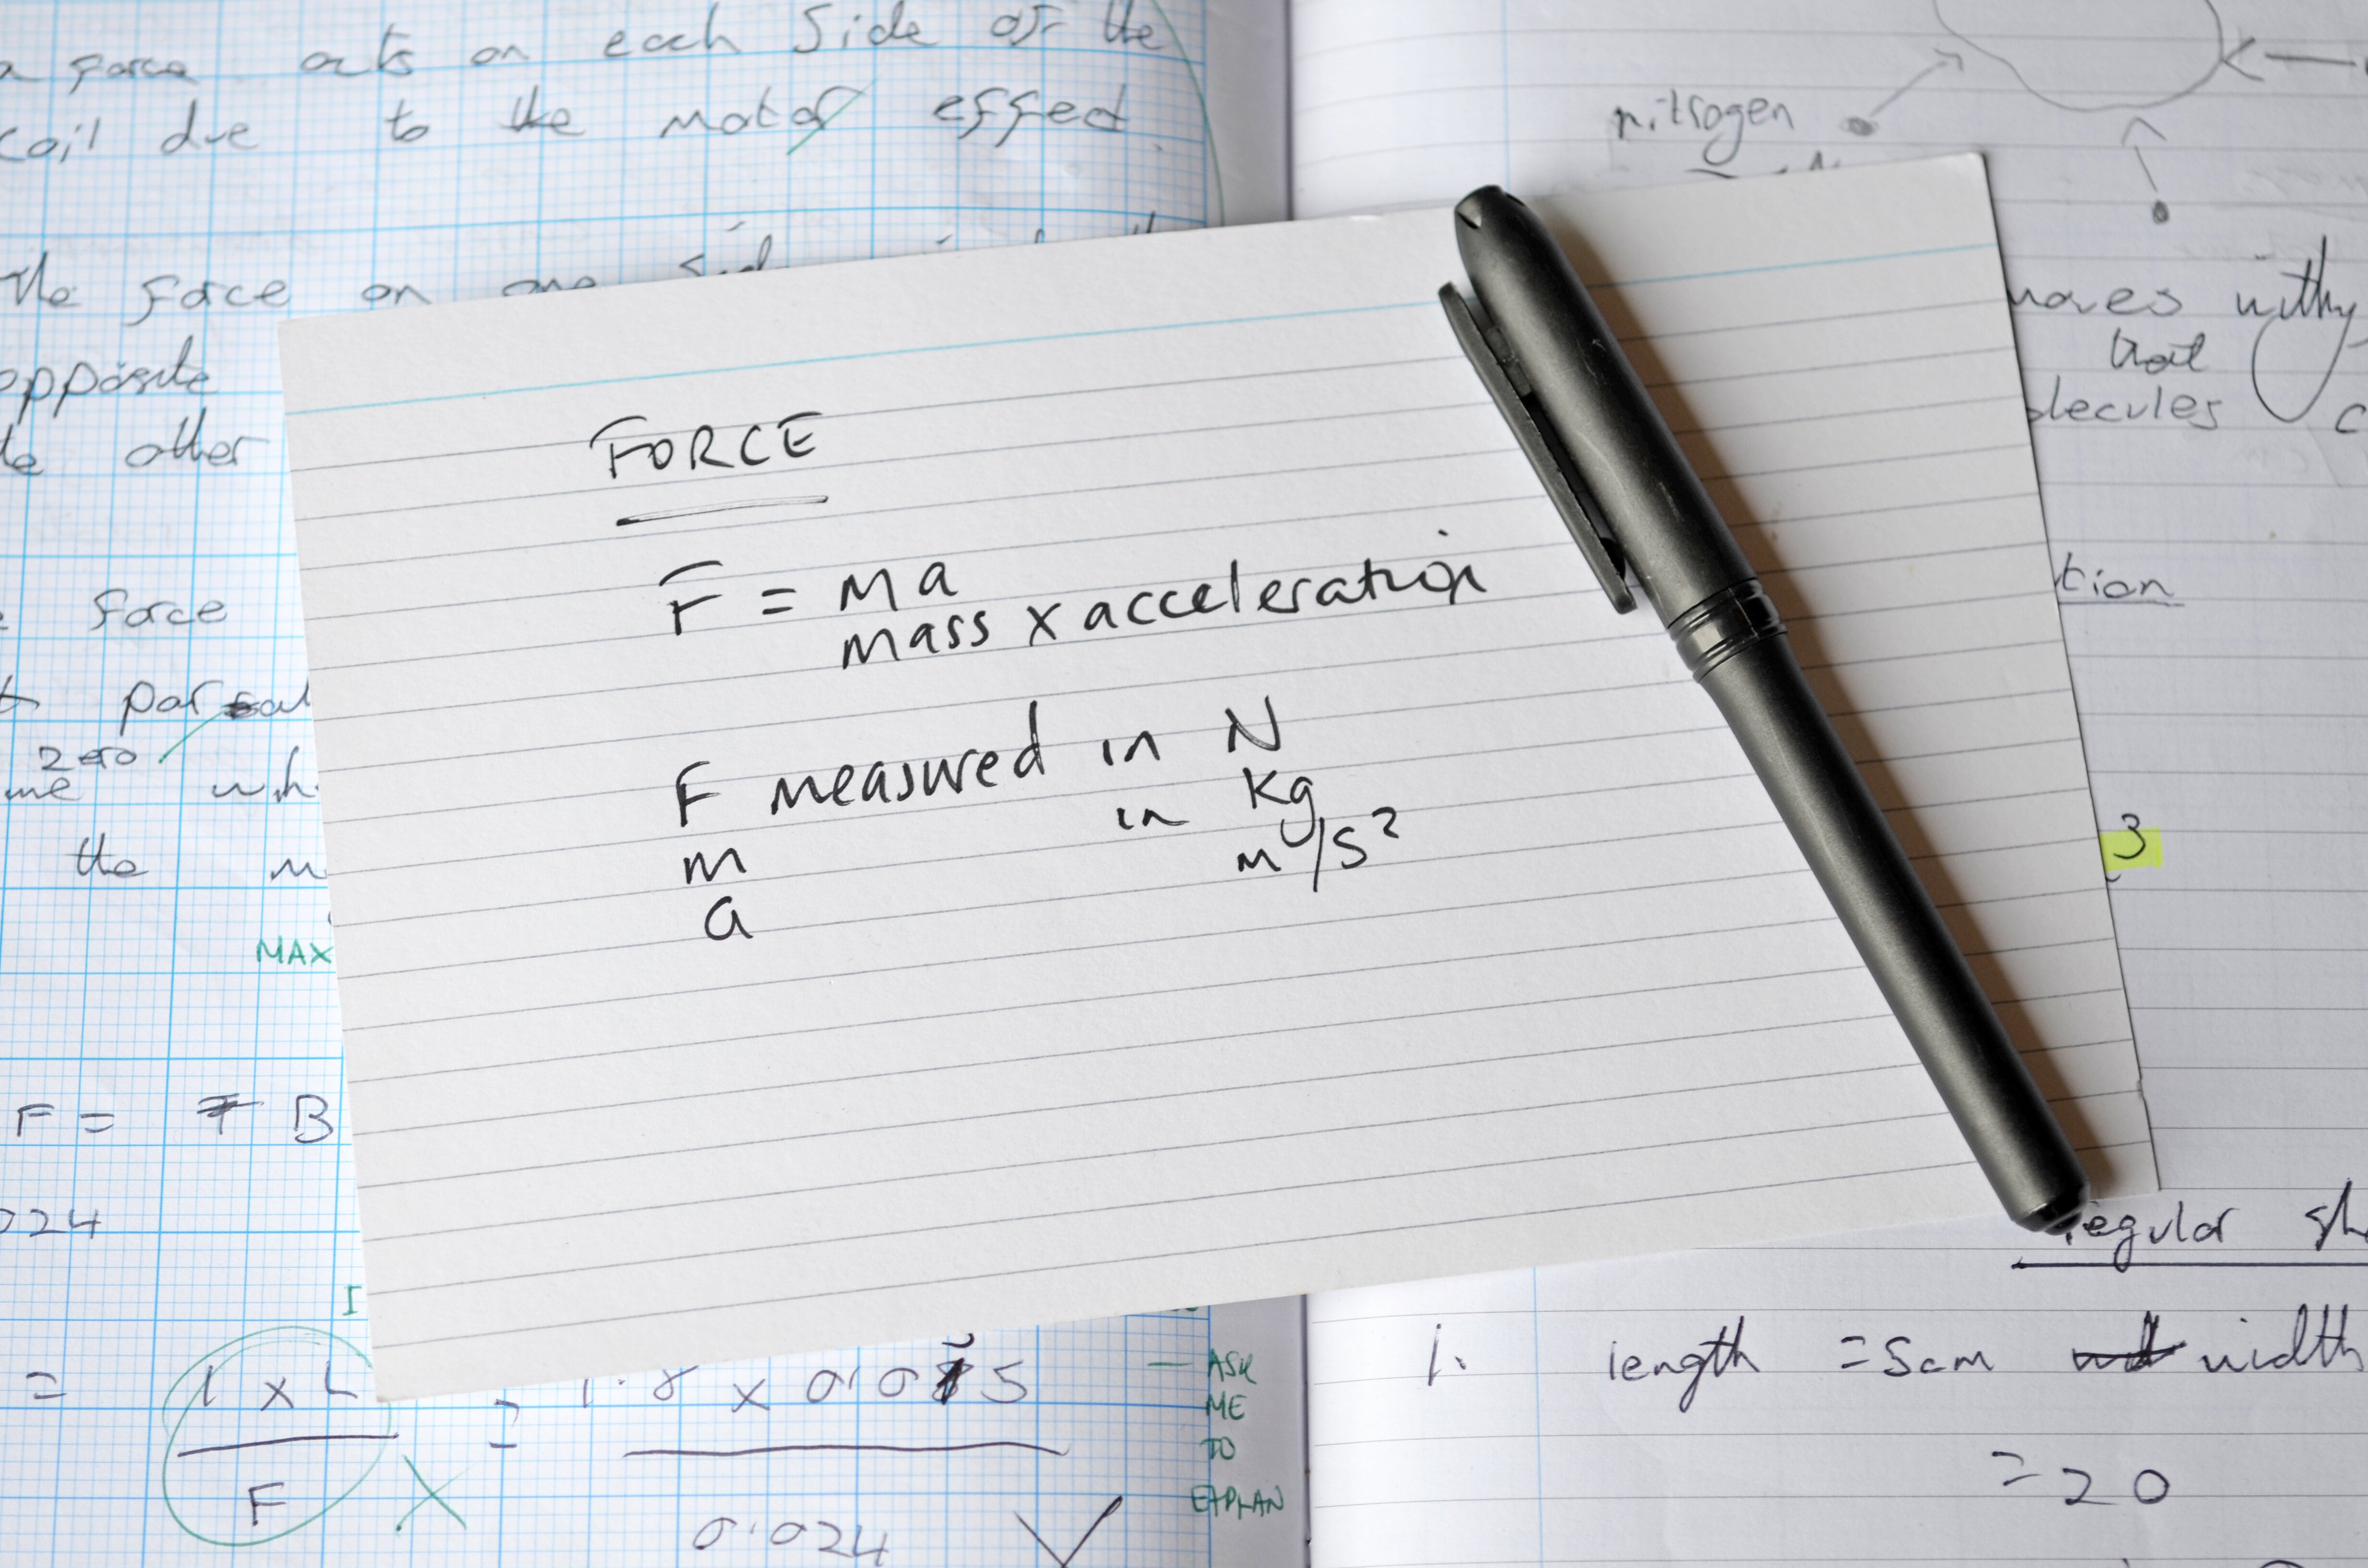 a force acts on each side of the
coil due to the motor effect.
the force on one side
opposite
other
force
zero
the
MAX
F = B
024
I
= I x L = 1.8 x
F
0.024
ASK
ME
TO
EXPLAIN
FORCE
F = Ma
mass x acceleration
F measured in N
m in kg
a m/s²
nitrogen
moves with
that
3
1. length = 5cm width
= 20